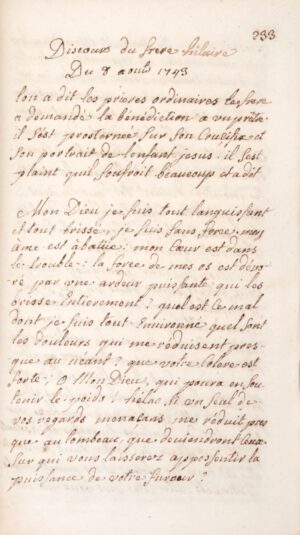 233
Discours du frere hilaire
Du 8 aouts 1743
lon a dit les prieres ordinaires le frere
a demandé la bénédiction a un prêtre
il s'est prosternée sur son Crucifix et
son portrait de lenfant jesus. il s'est
plaint quil soufroit beaucoup et a dit
Mon Dieu je suis tout languissant
et tout brissé, je suis sans force, mon
ame est abatue, mon Cœur est dans
le trouble: la force de mes os est devo
ré par une ardeur puissante qui les
brisse entierement? quel est ce mal
dont je suis tout Environné quel sont
les douleurs qui me reduisent pres
que au néant? que votre Colere est
forte, O Mon Dieu, qui poura en sou
tenir le poids! helac si un seul de
vos regards menaçans me réduit pres
que au tombeau, que deviendront Ceux
sur qui vous laisserez appesentir la
puissance de votre fureur?